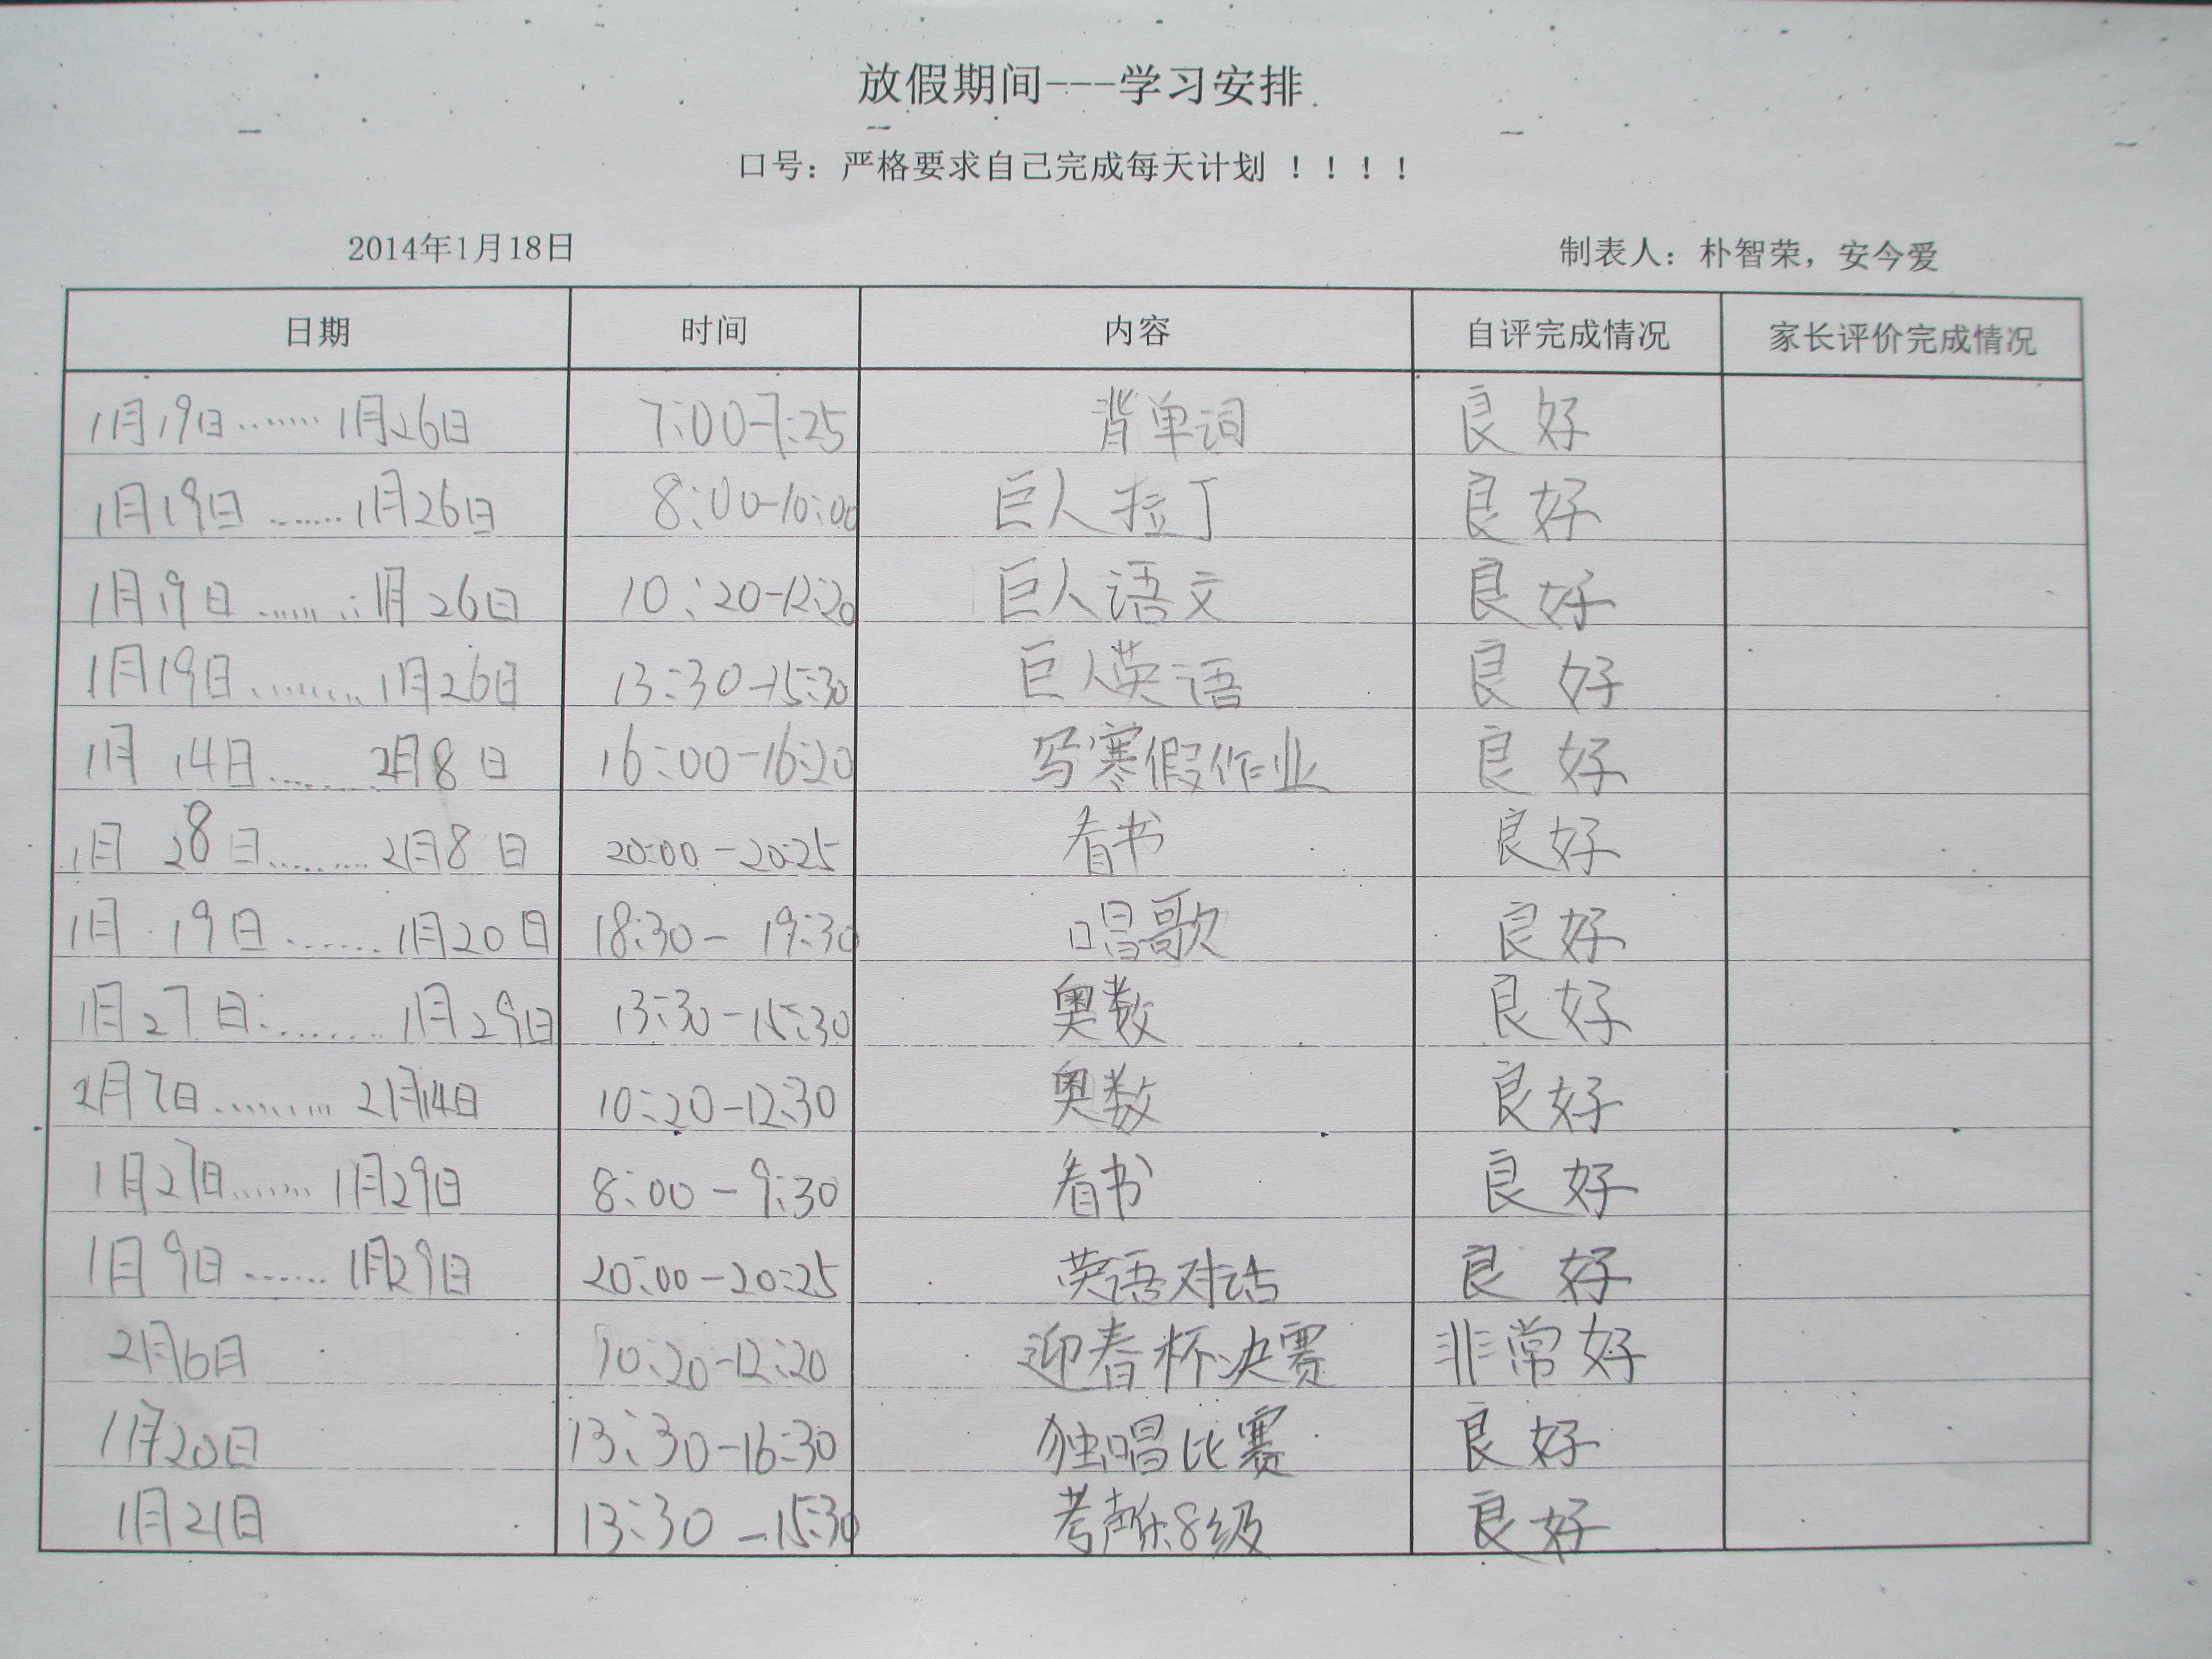 放假期间---学习安排
口号：严格要求自己完成每天计划 ！！！！
2014年1月18日 制表人：朴智荣，安今爱
日期 时间 内容 自评完成情况 家长评价完成情况
1月19日……1月26日 7:00-7:25 背单词 良好
1月19日……1月26日 8:00-10:00 巨人拉丁 良好
1月19日……1月26日 10:20-12:20 巨人语文 良好
1月19日……1月26日 13:30-15:30 巨人英语 良好
1月14日……2月8日 16:00-16:20 写寒假作业 良好
1月28日……2月8日 20:00-20:25 看书 良好
1月19日……1月20日 18:30-19:30 唱歌 良好
1月27日……1月29日 13:30-15:30 奥数 良好
2月7日……2月14日 10:20-12:30 奥数 良好
1月27日……1月29日 8:00-9:30 看书 良好
1月9日……1月29日 20:00-20:25 英语对话 良好
2月6日 10:20-12:20 迎春杯决赛 非常好
1月20日 13:30-16:30 独唱比赛 良好
1月21日 13:30-15:30 考声乐8级 良好